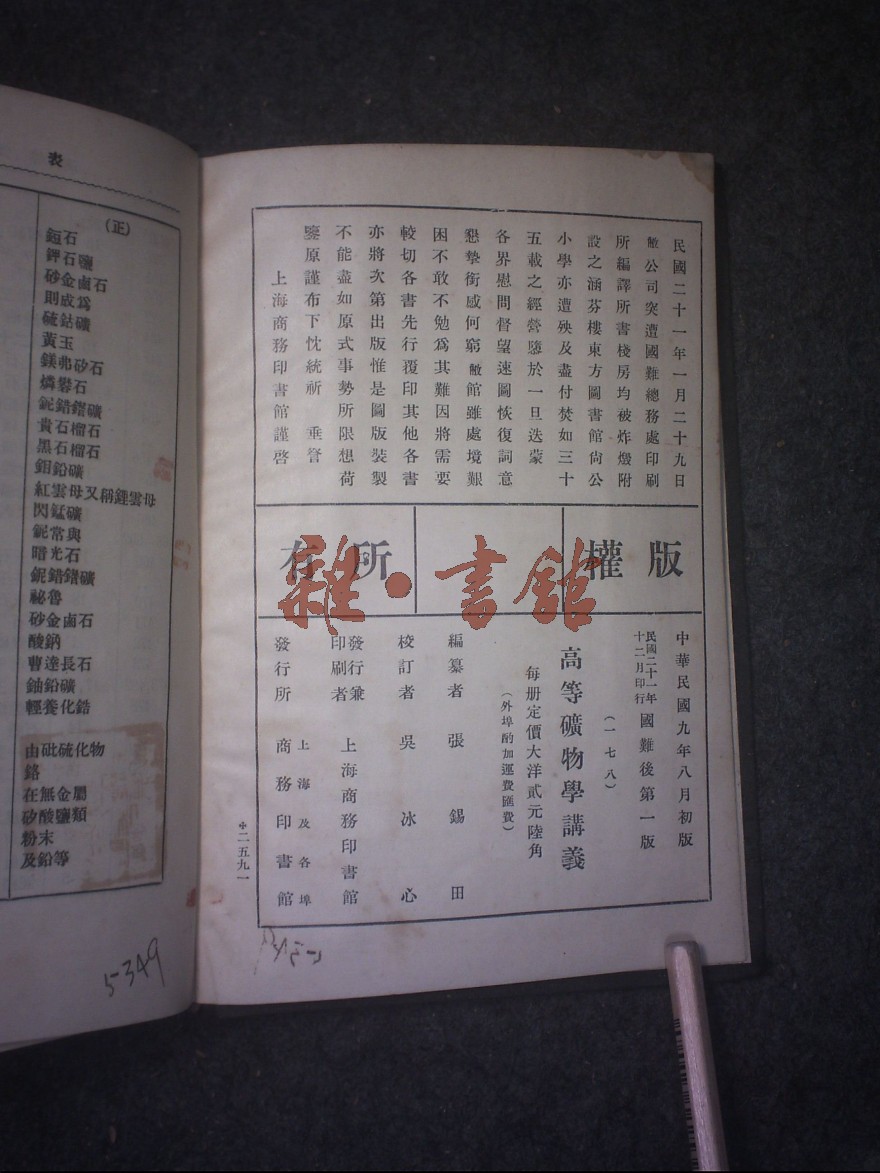 民國二十一年一月二十九日
敝公司突遭國難總務處印刷
所編譯所書棧房均被炸燬附
設之涵芬樓東方圖書館尙公
小學亦遭殃及盡付焚如三十
五載之經營隳於一旦迭蒙
各界慰問督望速圖恢復詞意
懇摯銜感何窮敝館雖處境艱
困不敢不勉爲其難因將需要
較切各書先行覆印其他各書
亦將次第出版惟是圖版裝製
不能盡如原式事勢所限想荷
鑒原謹布下忱統祈 垂詧
上海商務印書館謹啓
版權所有
雜·書館
中華民國九年八月初版
民國二十一年十二月印行 國難後第一版
(一七八)
高等礦物學講義
每册定價大洋貳元陸角
(外埠酌加運費匯費)
編纂者 張錫田
校訂者 吳冰心
發行兼印刷者 上海商務印書館
發行所 上海及各埠 商務印書館
二五九一
表
(正)
鉀石鹽
砂金鹵石
則成爲
硫鈷礦
黃玉
鎂弗矽石
燐礬石
鈮錯鐠礦
貴石榴石
黑石榴石
鉬鉛礦
紅雲母又稱鋰雲母
閃錳礦
鈮常與
暗光石
鈮錯鐠礦
祕魯
砂金鹵石
酸鈉
曹達長石
鈾鉛礦
輕養化鋯
由砒硫化物
鉻
在無金屬
矽酸鹽類
粉末
及鉛等
5349